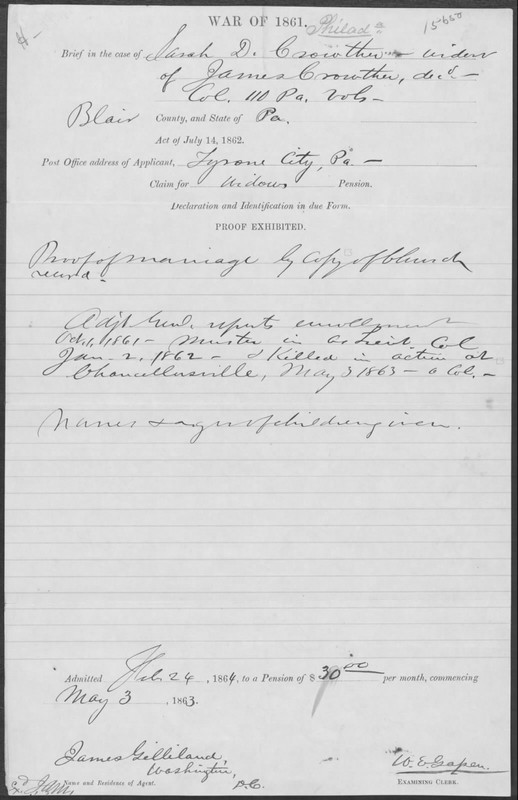 WAR OF 1861.
Philada
15650
Brief in the case of Sarah D. Crowther widow
of James Crowther, decd
Col. 110 Pa. Vols
Blair County, and State of Pa.
Act of July 14, 1862.
Post Office address of Applicant, Tyrone City, Pa.
Claim for Widows Pension.
Declaration and Identification in due Form.
PROOF EXHIBITED.
Proof of marriage by copy of Church
record.
Adjt Genl. reports enrollment
Oct. 1, 1861 - Muster in as Leiut. Col
Jan. 2, 1862 - & Killed in action at
Chancellorsville, May 3 1863 - a Col. -
Names & ages of children given.
Admitted Feb 24, 1864, to a Pension of $30.00 per month, commencing
May 3, 1863.
James Gilliland,
Washington,
D.C.
Name and Residence of Agent.
W. E. Gapen.
EXAMINING CLERK.